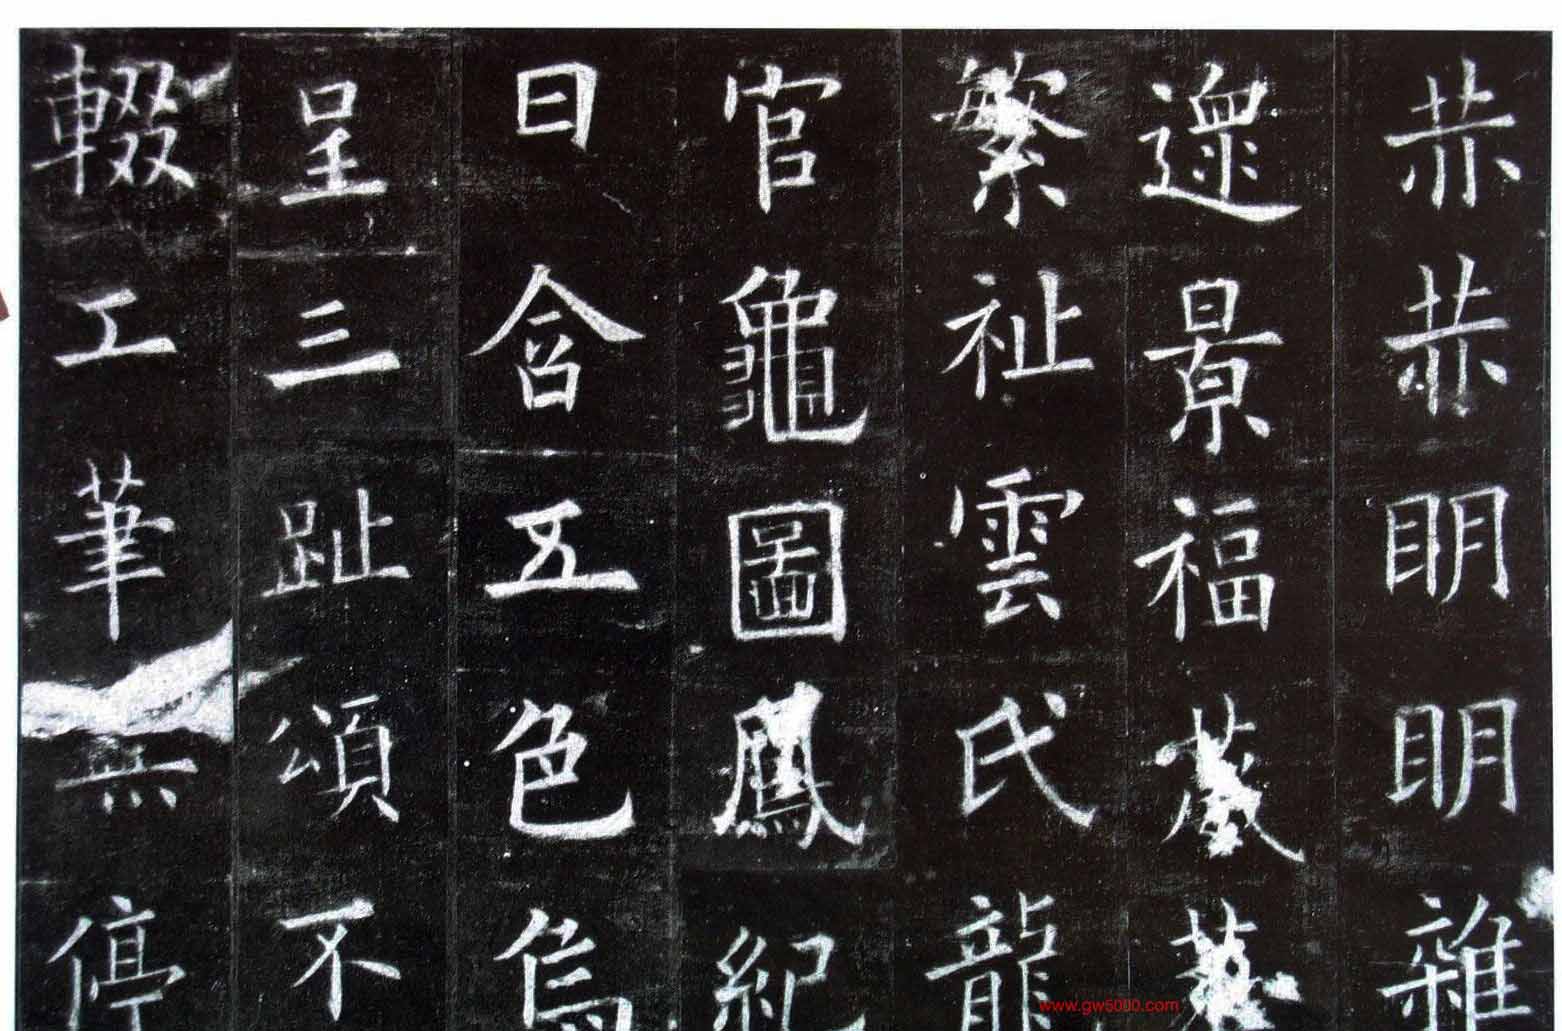 赫赫明明雜
遝景福葳蕤
繁祉雲氏龍
官龜圖鳳紀
日含五色烏
呈三趾頌不
輟工筆無停
www.gw5000.com